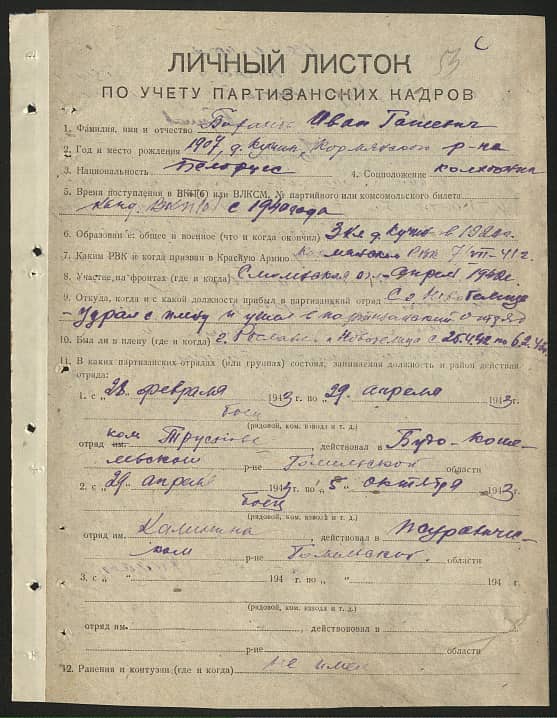 53
ЛИЧНЫЙ ЛИСТОК
ПО УЧЕТУ ПАРТИЗАНСКИХ КАДРОВ
1. Фамилия, имя и отчество Иван
2. Год и место рождения 1907, д. Кормянского р-на
3. Национальность Белорус 4. Соцположение колхозник
5. Время поступления в ВКП(б) или ВЛКСМ, № партийного или комсомольского билета
Канд. ВКП(б) с 1940 года
6. Образование: общее и военное (что и когда окончил) 3 кл. д. в
7. Каким РВК и когда призван в Красную Армию РВК 7/VII-41 г.
8. Участие на фронтах (где и когда) апрель 1942 г.
9. Откуда, когда и с какой должности прибыл в партизанский отряд С д.
Удрал с плену и ушел в партизанский отряд
10. Был ли в плену (где и когда) г. Рославль и с 25.4.42 по
11. В каких партизанских отрядах (или группах) состоял, занимаемая должность и район действия
отряда:
1. с „28“ февраля 1943 г. по „29“ апреля 1943 г.
боец
(рядовой, ком. взвода и т. д.)
отряд им. , действовал в Буда-Коше-
левском р-не Гомельской области
2. с „29“ апреля 1943 г. по „5“ октября 1943 г.
боец
(рядовой, ком. взвода и т. д.)
отряд им. Калинина , действовал в Журавичи-
ском р-не Гомельской области
3. с „ “ 194 г. по „ “ 194 г.
(рядовой, ком. взвода и т. д.)
отряд им. , действовал в
р-не области
12. Ранения и контузии (где и когда) не имел